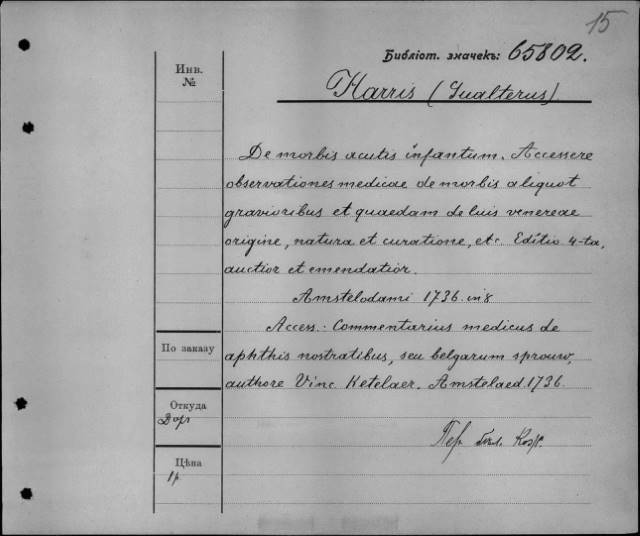 15
Библіот. значекъ: 65802.
Инв.
№
Harris (Gualterus)
De morbis acutis infantum. Accessere
observationes medicae de morbis aliquot
gravioribus et quaedam de luis venereae
origine, natura et curatione, etc. Editio 4-ta,
auctior et emendatior.
Amstelodami 1736. in 8
Access.: Commentarius medicus de
По заказу
aphthis nostratibus, seu belgarum sprouw,
authore Vinc Ketelaer. Amstelaed. 1736.
Откуда
Пер. бил.
Цѣна
1р